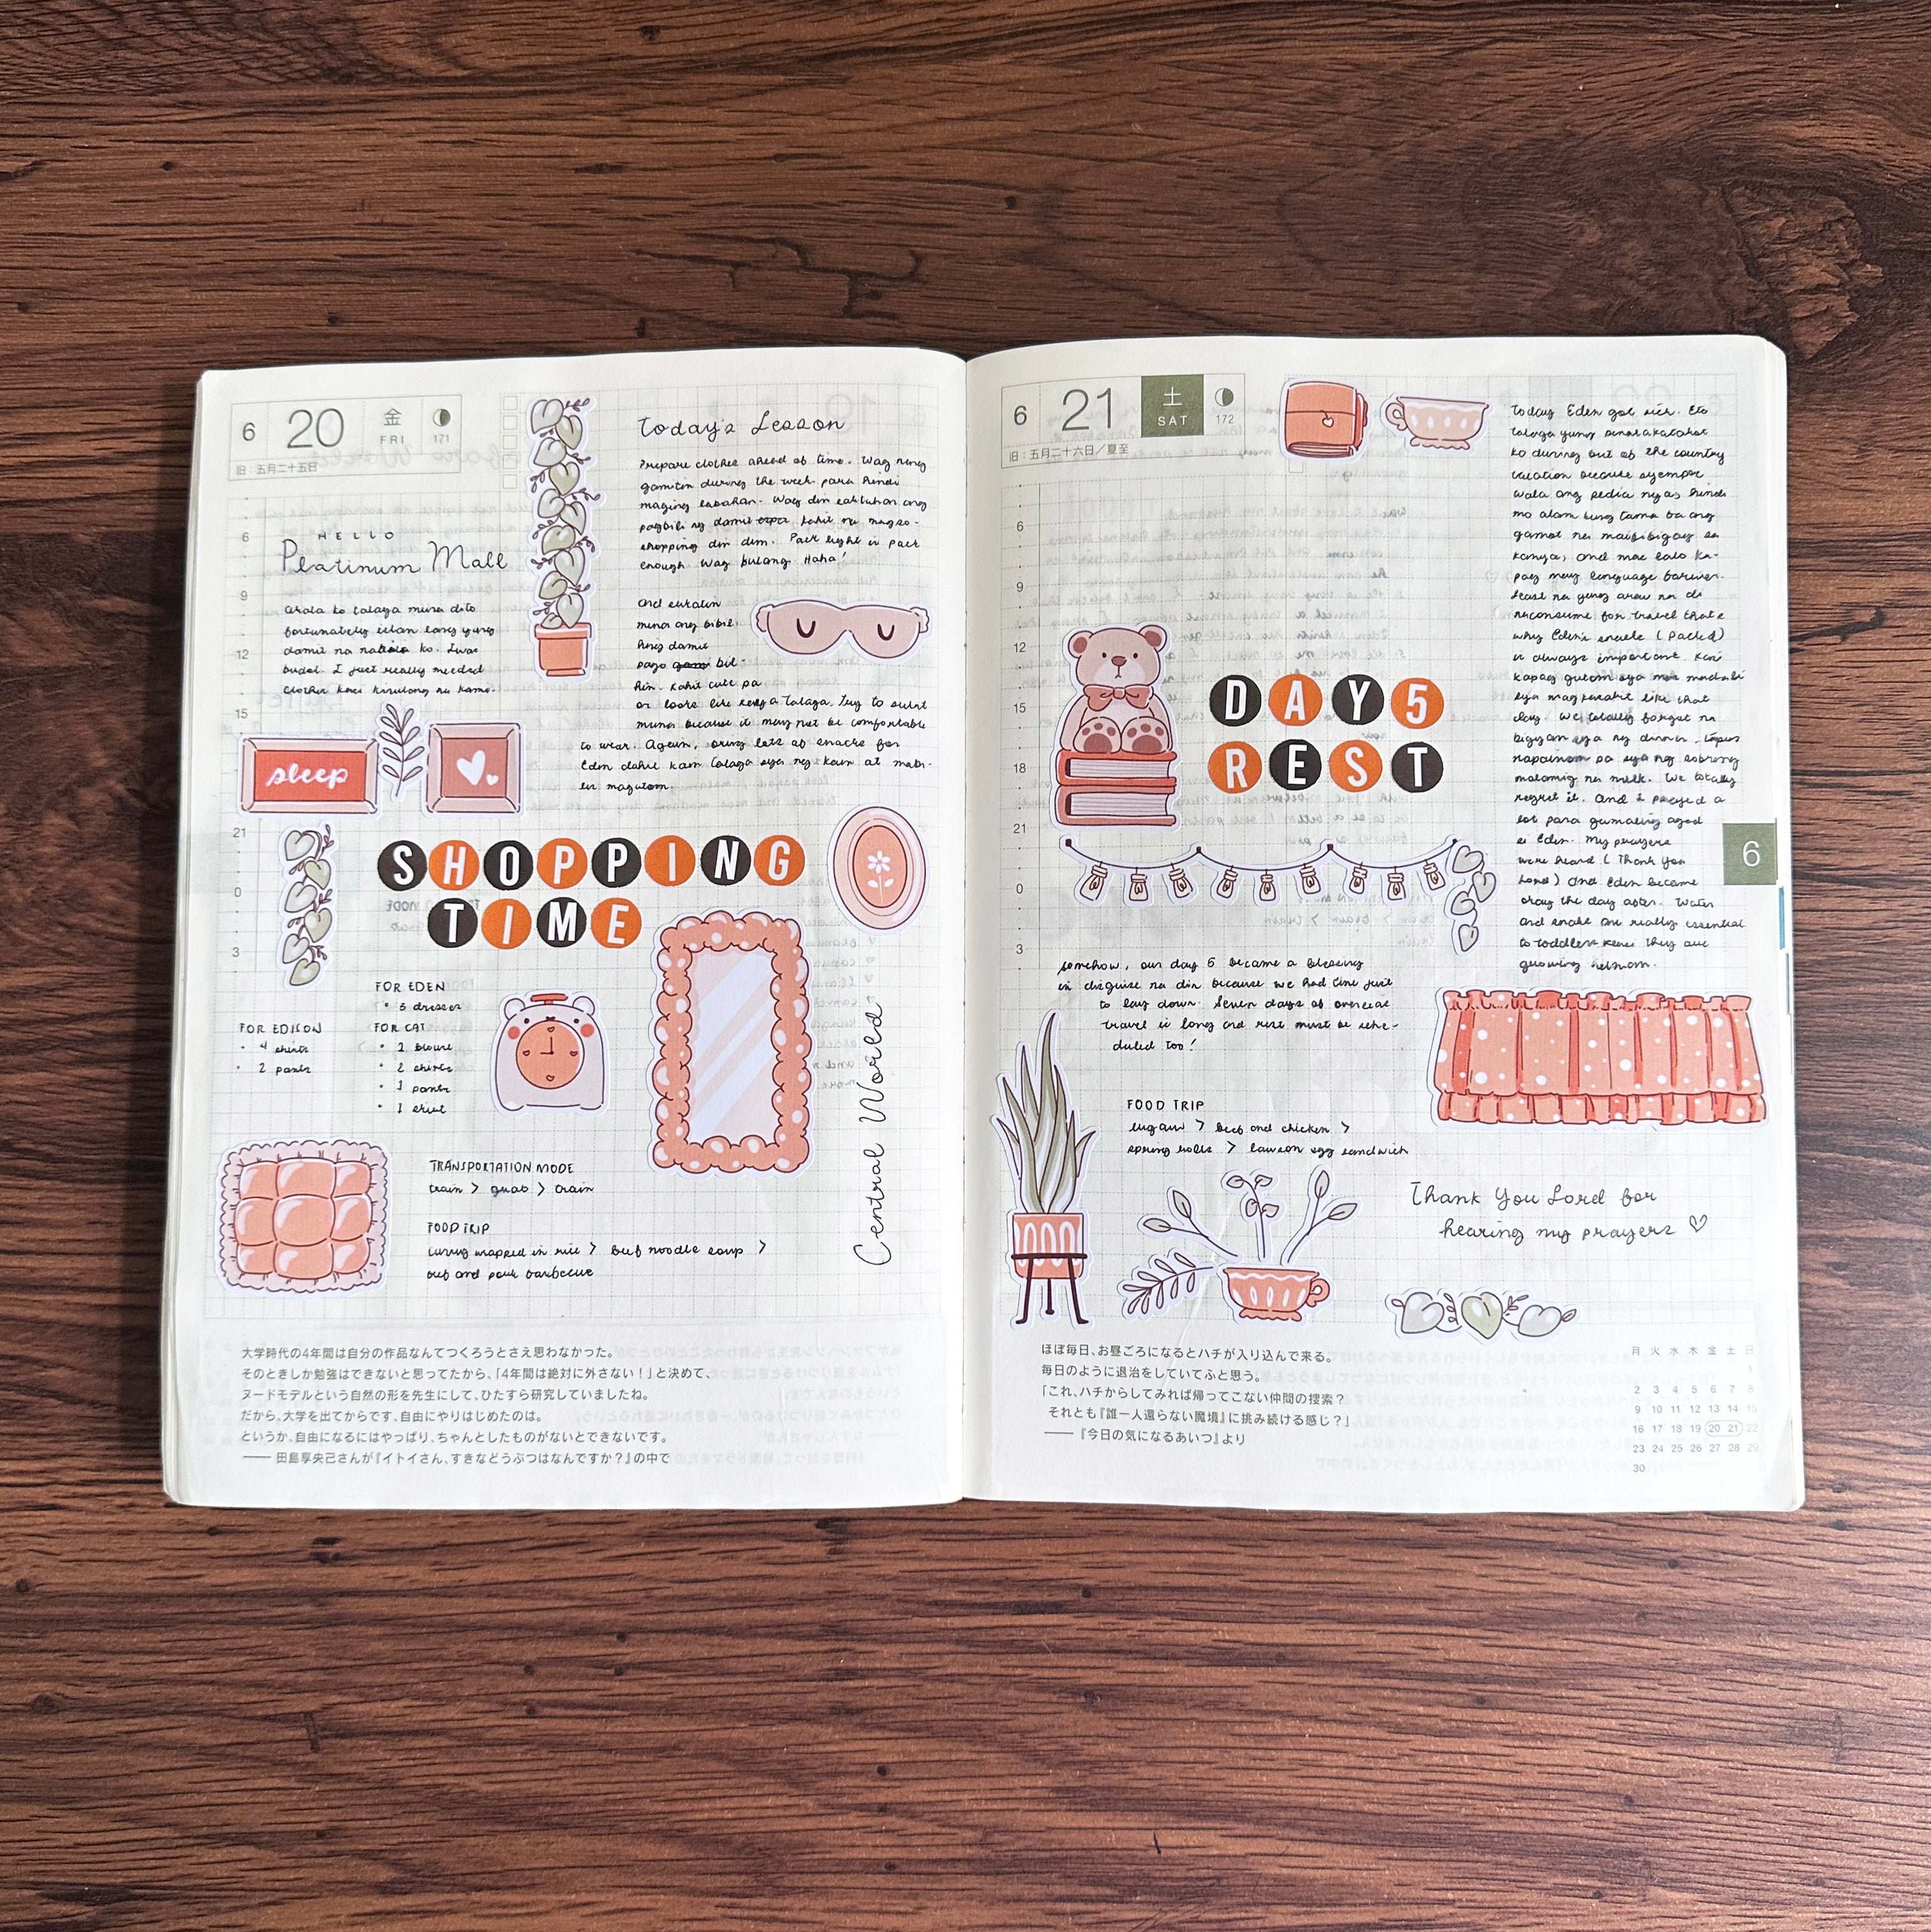 6 20 金 FRI 171
旧：五月二十五日
HELLO
Platinum Mall
akala ko talaga mura dito
fortunately ilan lang yung
damit na nabili ko. Iwas
budol. I just really needed
clothes kasi kinulang na kami.
Today's Lesson
Prepare clothes ahead of time. Wag nang
gamitin during the week para hindi
maging labahan. Wag din
pagbili ng damit kahit na magso-
shopping din dun. Pack light is pack
enough wag kulang Haha!
And sukatin
muna ang bibil-
hing damit
bago bil-
hin. Kahit cute pa
or looks like kasya talaga. Try to sukat
muna because it may not be comfortable
to wear. Again, bring lots of snacks for
Eden dahil kain talaga sya ng kain at mabi-
lis magutom.
sleep
SHOPPING
TIME
FOR EDISON
• 4 shirts
• 2 pants
FOR EDEN
• 5 dresses
FOR CAT
• 2 blouse
• 2 shirts
• 1 pants
• 1 skirt
Central World
TRANSPORTATION MODE
train > grab > train
FOOD TRIP
curry wrapped in rice > beef noodle soup >
beef and pork barbecue
6
9
12
15
21
0
3
大学時代の4年間は自分の作品なんてつくろうとさえ思わなかった。
そのときしか勉強はできないと思ってたから、「4年間は絶対に外さない！」と決めて、
ヌードモデルという自然の形を先生にして、ひたすら研究していましたね。
だから、大学を出てからです、自由にやりはじめたのは。
というか、自由になるにはやっぱり、ちゃんとしたものがないとできないです。
―― 田島享央己さんが『イトイさん、すきなどうぶつはなんですか？』の中で
6 21 土 SAT 172
旧：五月二十六日／夏至
Today Eden got sick. Eto
talaga yung pinakakatakot
ko during out of the country
vacation because syempre
wala ang pedia nya, hindi
mo alam kung tama ba ang
gamot na maibibigay sa
kanya, and mas lalo ka-
pag may language barrier.
Least na yung araw na di
naconsume for travel that's
why Eden's snacks (packed)
is always important. Kasi
kapag gutom sya mas madali
sya magkasakit like that
day. We totally forgot na
bigyan sya ng dinner, tapos
napainom pa sya ng sobrang
malamig na milk. We totally
regret it. And I prayed a
lot para gumaling agad
si Eden. My prayers
were heard (Thank You
Lord) and Eden became
okay the day after. Water
and snacks are really essential
to toddlers kasi they are
growing
DAY5
REST
6
9
12
15
18
21
0
3
6
somehow, our day 5 became a blessing
in disguise na din because we had time just
to lay down. Seven days of overseas
travel is long and rest must be sche-
duled too!
FOOD TRIP
lugaw > beef and chicken >
spring rolls > lawson egg sandwich
Thank You Lord for
hearing my prayers ♡
ほぼ毎日、お昼ごろになるとハチが入り込んで来る。
毎日のように退治をしていてふと思う。
「これ、ハチからしてみれば帰ってこない仲間の捜索？
それとも『誰一人還らない魔境』に挑み続ける感じ？」
―― 『今日の気になるあいつ』より
月 火 水 木 金 土 日
1
2 3 4 5 6 7 8
9 10 11 12 13 14 15
16 17 18 19 20 21 22
23 24 25 26 27 28 29
30